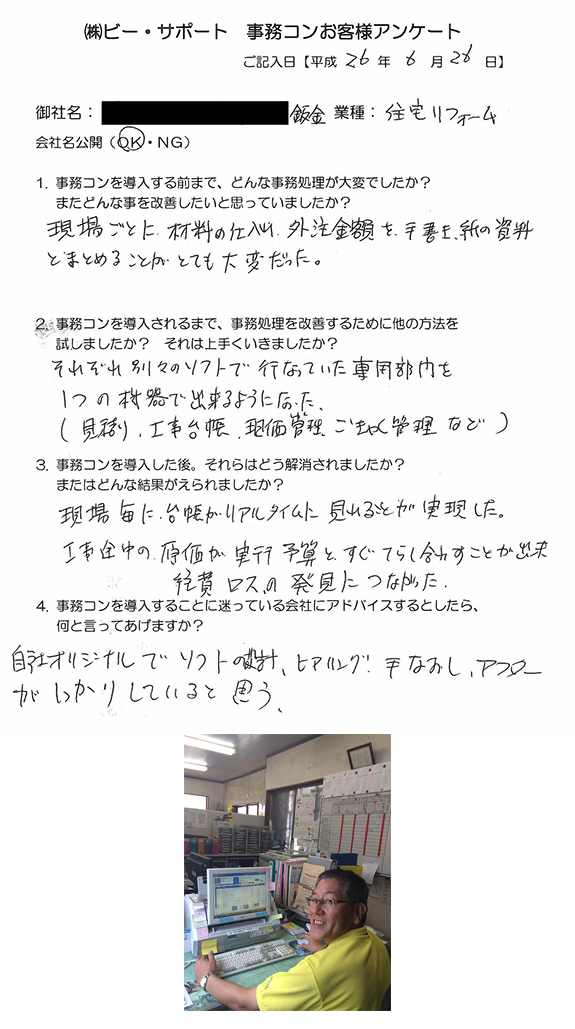 ㈱ビー・サポート　事務コンお客様アンケート
ご記入日【平成 26 年 6 月 26 日】
御社名： 鈑金 業種： 住宅リフォーム
会社名公開（OK・NG）
1. 事務コンを導入する前まで、どんな事務処理が大変でしたか？
またどんな事を改善したいと思っていましたか？
現場ごとに、材料の仕入れ、外注金額を、手書き、紙の資料
とまとめることがとても大変だった。
2. 事務コンを導入されるまで、事務処理を改善するために他の方法を
試しましたか？　それは上手くいきましたか？
それぞれ別々のソフトで行なっていた専用部内を
1つの機器で出来るようになった、
（見積り、工事台帳、現価管理、こきゃく管理など）
3. 事務コンを導入した後。それらはどう解消されましたか？
またはどんな結果がえられましたか？
現場毎に、台帳がリアルタイムに見れることが実現した。
工事途中の、原価が実行予算と、すぐてらし合わすことが出来
経費ロスの発見につながった。
4. 事務コンを導入することに迷っている会社にアドバイスするとしたら、
何と言ってあげますか？
自社オリジナルでソフトの設計、ヒアリング、手なおし、アフター
がしっかりしていると思う、